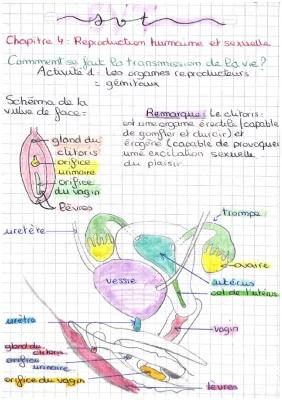 svt
Chapitre 4 : Reproduction humaine et sexuelle
Comment se fait la transmission de la vie ?
Activité 1 : Les organes reproducteurs
= génitaux
Schéma de la
vulve de face=
gland du
clitoris
orifice
urinaire
orifice
du vagin
lèvres
Remarque : Le clitoris :
est une organe érectile (capable
de gonfler et durcir) et
érogène (capable de provoquer
une excitation sexuelle
du plaisir
trompe
uretère
ovaire
vessie
utérus
col de l'utérus
urètre
vagin
gland du
clitoris
orifice
urinaire
orifice du vagin
lèvres